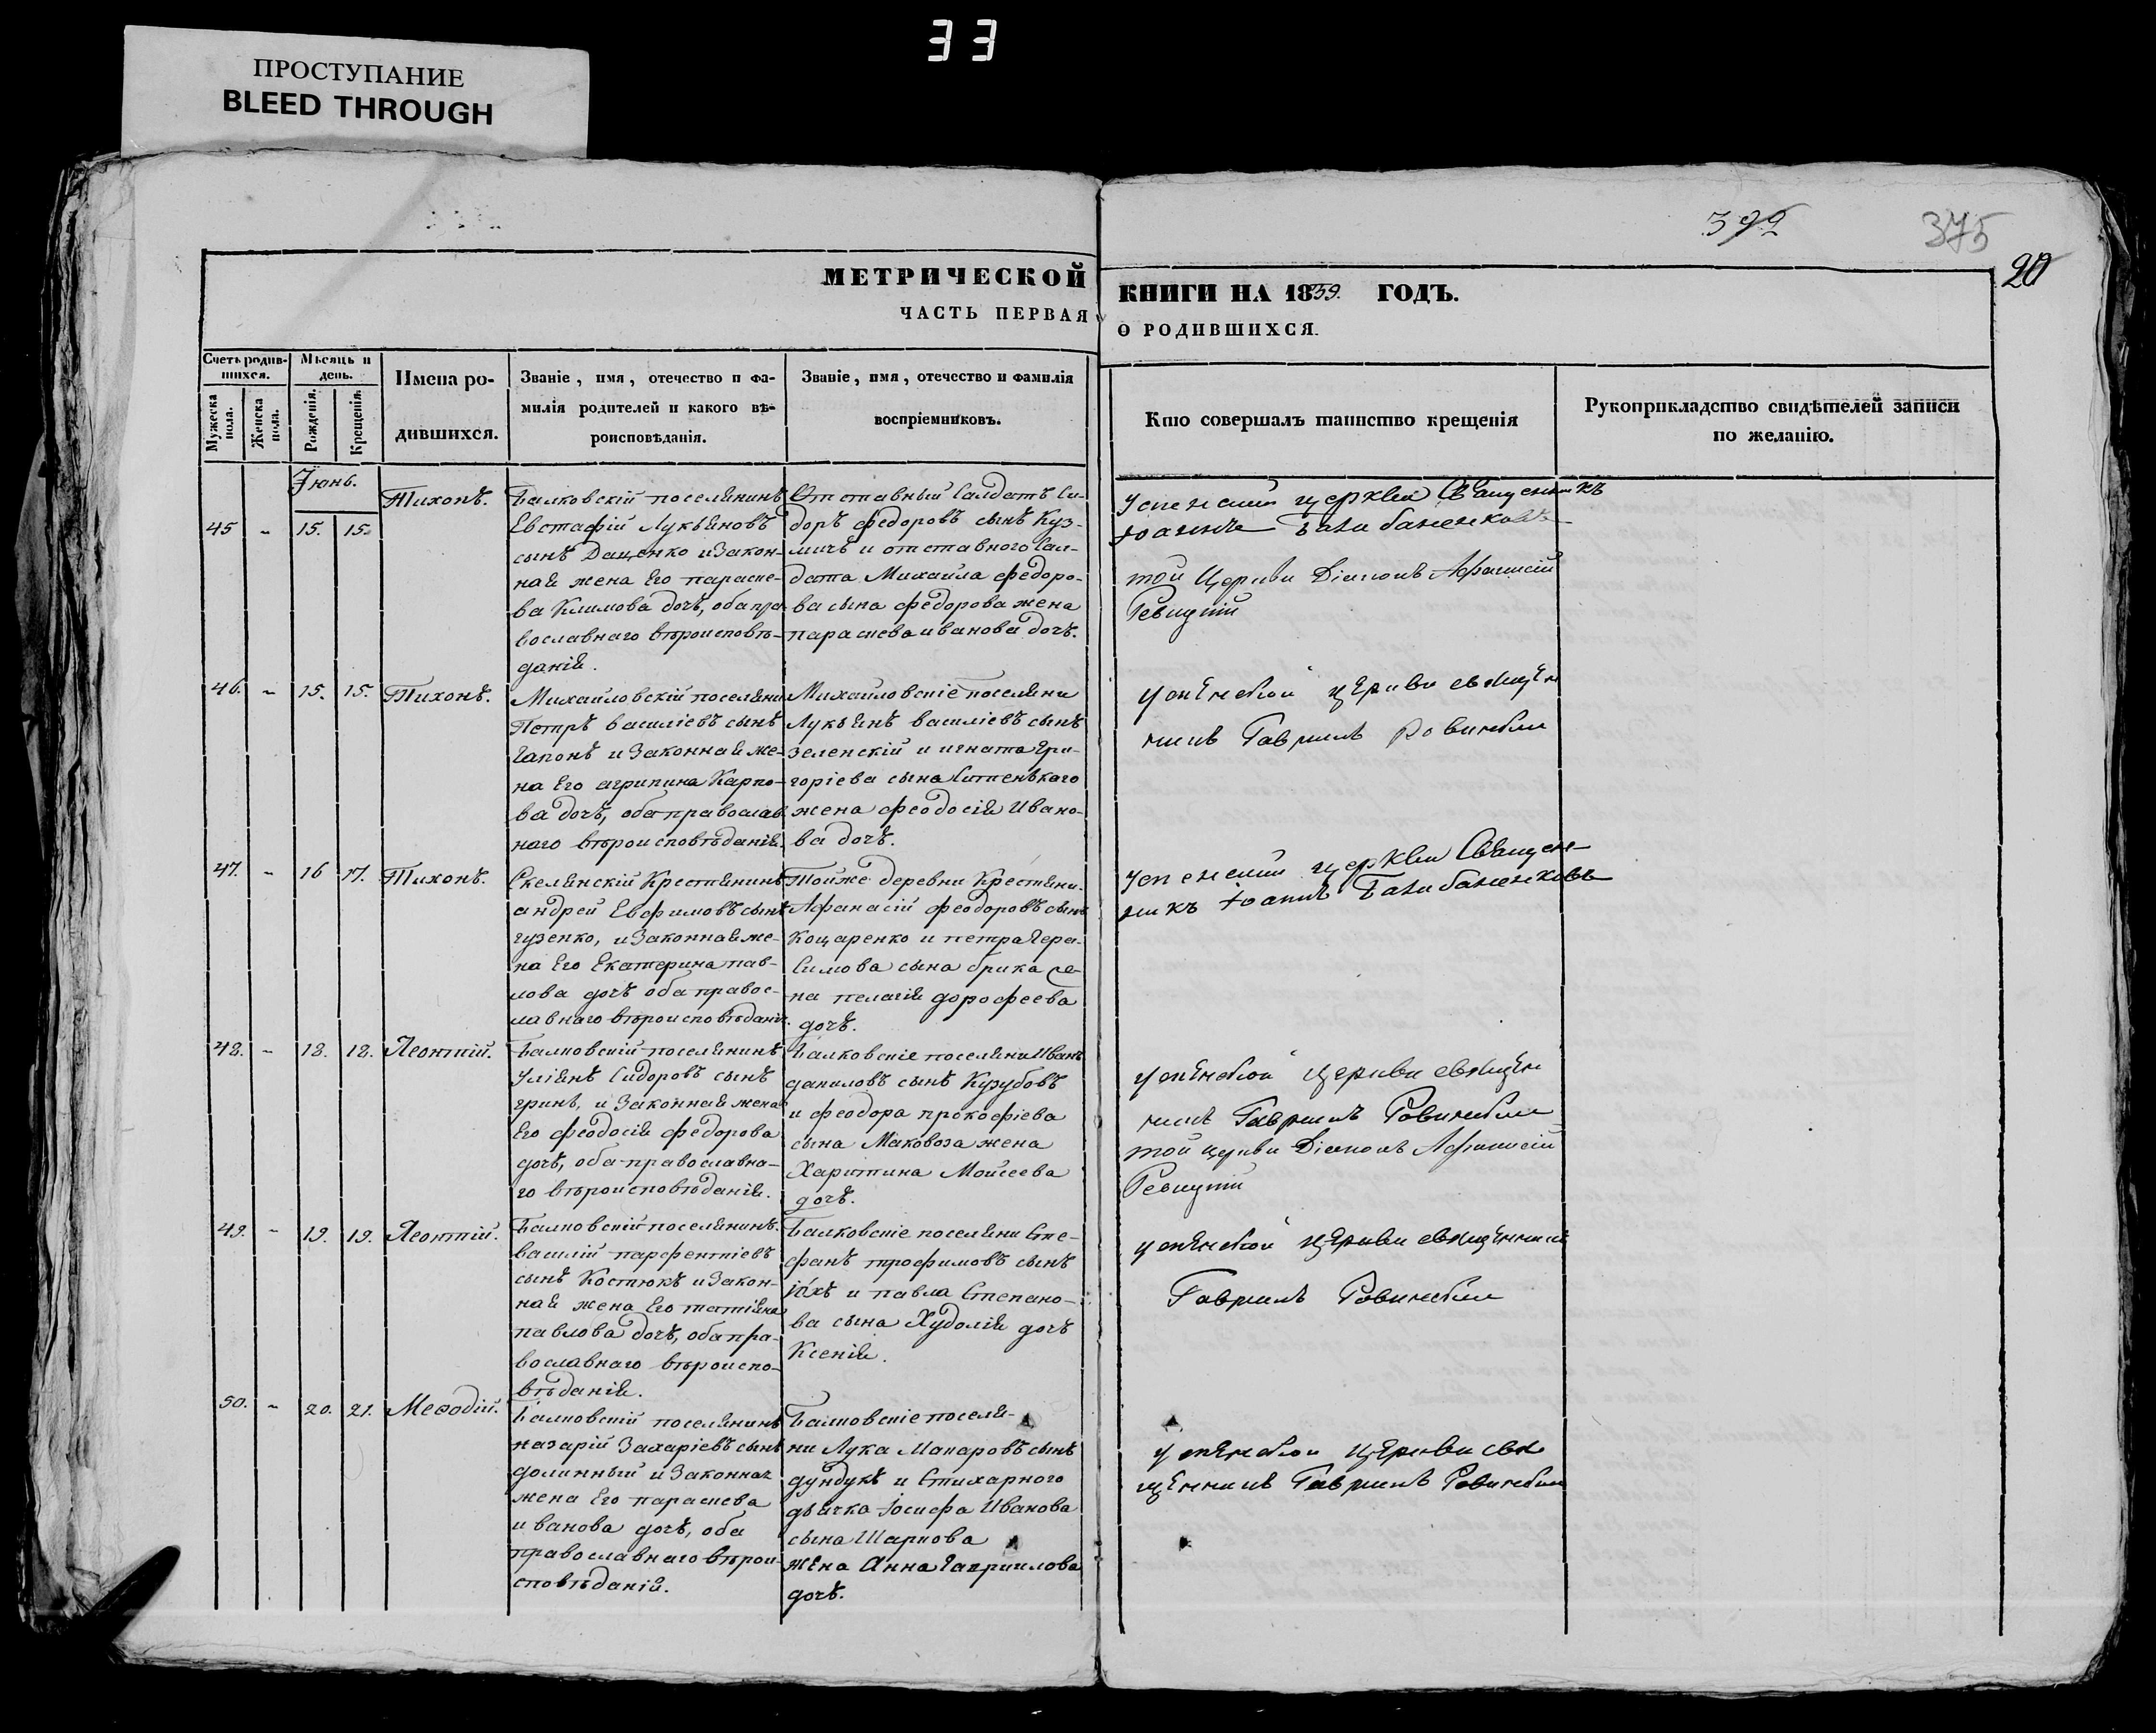 33
ПРОСТУПАНИЕ
BLEED THROUGH
392
375
20
МЕТРИЧЕСКОЙ
ЧАСТЬ ПЕРВАЯ
КНИГИ НА 1839. ГОДЪ.
О РОДИВШИХСЯ.
Счетъ родив-
шихся.
Мужеска
пола.
Женска
пола.
Мѣсяць и
день.
Рожденія.
Крещенія.
Имена ро-
дившихся.
Званіе, имя, отечество и фа-
милія родителей и какого вѣ-
роисповѣданія.
Званіе, имя, отечество и фамилія
воспріемниковъ.
Кто совершалъ таинство крещенія
Рукоприкладство свидѣтелей записи
по желанію.
Іюнь.
45 - 15. 15.
Тихонъ.
Балковскій поселянинъ
Евстафій Лукьяновъ
сынъ Даценко и Закон-
ная жена Его параске-
ва Климова дочь, оба пра
вославнаго вѣроисповѣ-
данія.
Отставный Салдатъ Си-
доръ Федоровъ сынъ Куз-
мичъ и отставного Сал-
дата Михаила Федоро-
ва сына Федорова жена
параскева иванова дочь.
Успенской церкви Священникъ
Іоаннъ
той Церкви Діаконъ Афанасій
Ревуцкій
46. - 15. 15. Тихонъ.
Михайловскій поселяни
Петръ василіевъ сынъ
Гапонъ и Законная же-
на Его агрипина Карпо-
ва дочь, оба православ
наго вѣроисповѣданія.
Михайловскіе поселяни
Лукьянъ василіевъ сынъ
зеленскій и игната Гри-
горіева сына Ситенького
жена феодосія Ивано-
ва дочь.
Успенской церкви священ
никъ Гавриилъ Ровинскій
47. - 16 17. Тихонъ.
Скелянскій Крестянинъ
андрей Евфимовъ сынъ
гузенко, и Законная же-
на Его Екатерина пав-
лова дочь оба правос-
лавнаго вѣроисповѣданія.
Тойже деревни Крестяни.
Афанасій феодоровъ сынъ
Коцаренко и петра Гера-
Симова сына брика же-
на пелагія дорофеева
дочь.
Успенской церкви Священ-
никъ Іоаннъ
48. - 18. 18. Леонтій.
Балковскій поселянинъ
Уліянъ Сидоровъ сынъ
гринь, и Законная жена
Его феодосія федорова
дочь, оба православна-
го вѣроисповѣданія.
Балковскіе поселяни Иванъ
даниловъ сынъ Кузубовъ
и феодора прокофіева
сына Маковоза жена
Харитина Моисеева
дочь.
Успенской церкви священ
никъ Гавриилъ Ровинскій
той церкви Діаконъ Афанасій
Ревуцкій
49. - 19. 19. Леонтій.
Балковскій поселянинъ.
василій парфентіевъ
сынъ Костюкъ и Закон-
ная жена Его татіяна
павлова дочь, оба пра-
вославнаго вѣроиспо-
вѣданія.
Балковскіе поселяни Сте-
фанъ трофимовъ сынъ
и павла Степано-
ва сына Худолія дочь
Ксенія.
Успенской церкви священникъ
Гавриилъ Ровинскій
50. - 20. 21. Меѳодій.
Балковскій поселянинъ
назарій Захаріевъ сынъ
долинный и Законная
жена Его параскева
иванова дочь, оба
православнаго вѣрои-
сповѣданія.
Балковскіе поселя-
ни Лука Макаровъ сынъ
дундукъ и Стихарного
дьячка Іосифа Иванова
сына Шаркова
жена Анна Гавриилова
дочь.
Успенской церкви свя
щенникъ Гавриилъ Ровинскій